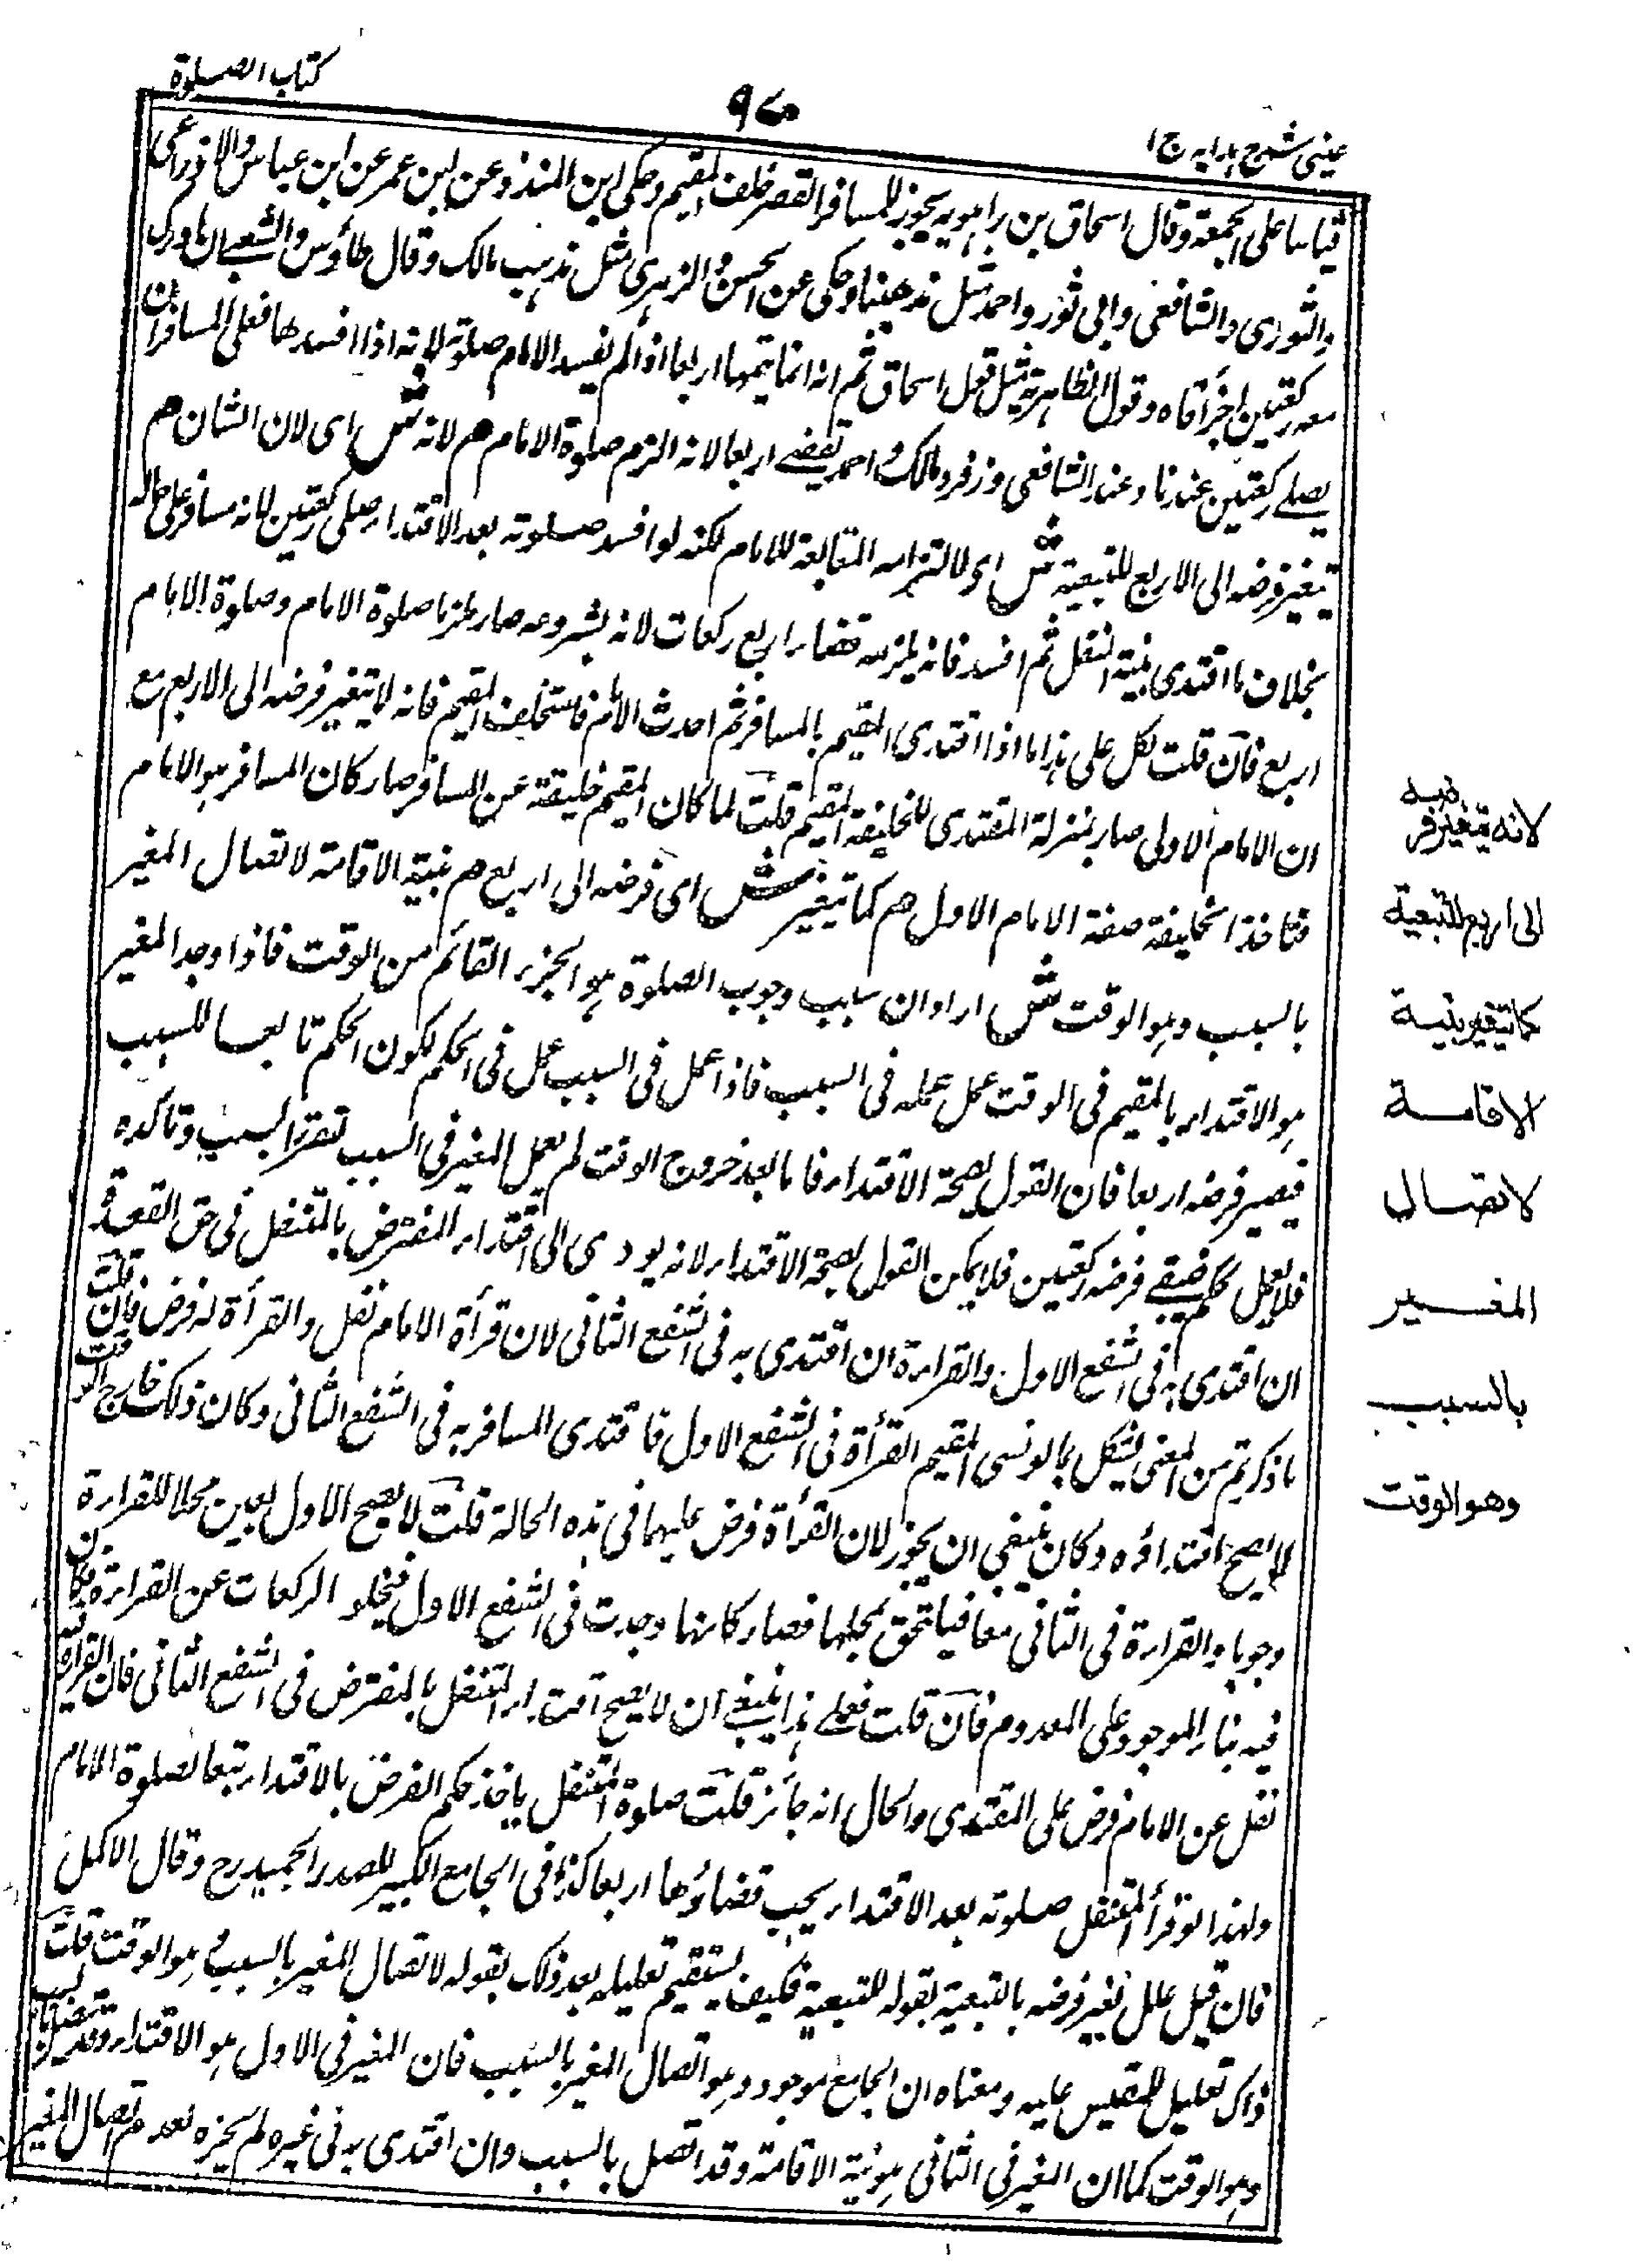 كتاب الصلوة
٩٧٠
عينى شرح هدايه ج ١
قياسا على الجمعة وقال اسحاق بن راهويه يجوز للمسافر القصر خلف المقيم وحكى ابن المنذر عن ابن عمر عن ابن عباس والاوزاعى
والثورى والشافعى وابى ثور واحمد مثل مذهبنا وحكى عن الحسن والزهرى مثل مذهب مالك وقال طاؤس والشعبى ان ادرك
معه ركعتين اجزأتاه وقول الظاهرية مثل قول اسحاق ثم انه انما يتمها اربعا اذا لم يفسد الامام صلوته لانه اذا افسدها فعلى المسافر ان
يصلے ركعتين عندنا وعند الشافعى وزفر ومالك واحمد يقضے اربعا لانه التزم صلوة الامام هم لانه ش اى لان الشان هم
يتغير فرضه الى الاربع للتبعية ش اى لالتزامه المتابعة للامام لكنه لو افسد صلوته بعد الاقتداء صلى ركعتين لانه مسافر على حاله
بخلاف ما اقتدى بنية النفل ثم افسد فانه يلزمه قضاء اربع ركعات لانه بشروعه صار ملتزما صلوة الامام وصلوة الامام
اربع فان قلت يشكل على هذا ما اذا اقتدى المقيم بالمسافر ثم احدث الامام فاستخلف المقيم فانه لا يتغير فرضه الى الاربع مع
ان الامام الاولى صار بمنزلة المقتدى للخليفة المقيم قلت لما كان المقيم خليفة عن المسافر صار كان المسافر هو الامام
فتاخذ الخليفة صفة الامام الاول هم كما يتغير ش اى فرضه الى اربع هم بنية الاقامة لاتصال المغير
بالسبب وهو الوقت ش اراد ان سبب وجوب الصلوة هو الجزء القائم من الوقت فاذا وجد المغير
هو الاقتداء بالمقيم فى الوقت عمل عمله فى السبب فاذا عمل فى السبب عمل فى الحكم لكون الحكم تابعا للسبب
فيصير فرضه اربعا فان القول بصحة الاقتداء فاما بعد خروج الوقت لم يعمل المغير فى السبب لتقرر السبب وتاكده
فلا يعمل فى الحكم فيبقے فرضه ركعتين فلا يمكن القول بصحة الاقتداء لانه يودى الى اقتداء المفترض بالمتنفل فى حق القعدة
ان اقتدى به فى الشفع الاول والقراءة ان اقتدى به فى الشفع الثانى لان قرأة الامام نفل والقرأة له فرض فان قلت
ما ذكرتم من المعنى يشكل بما لو نسى المقيم القرأة فى الشفع الاول فاقتدى المسافر به فى الشفع الثانى وكان ذلك خارج الوقت
لا يصح اقتداؤه وكان ينبغى ان يجوز لان القرأة فرض عليهما فى هذه الحالة قلت لا يصح الاول لعين محلا للقراءة
وجوبا والقراءة فى الثانى معا فيلتحق بمحلها فصار كانها وجدت فى الشفع الاول فيخلو الركعات عن القراءة فيكون
فيه بناء الموجود على المعدوم فان قلت فعلے هذا ينبغے ان لا يصح اقتداء المتنفل بالمفترض فى الشفع الثانى فان القراءة فيه
نفل عن الامام فرض على المقتدى والحال انه جائز قلت صلوة المتنفل ياخذ حكم الفرض بالاقتداء تبعا لصلوة الامام
ولهذا لو قرأ المتنفل صلوته بعد الاقتداء يجب قضاؤها اربعا كذا فى الجامع الكبير للصدر الحميد رح وقال الاكمل
فان قيل علل تغير فرضه بالتبعية بقوله للتبعية فكيف يستقيم تعليله بعد ذلك بقوله لاتصال المغير بالسبب وهو الوقت قلت
ذاك تعليل للمقيس عليه ومعناه ان الجامع موجود وهو اتصال المغير بالسبب فان المغير فى الاول هو الاقتداء وقد اتصل بالسبب
وهو الوقت كما ان المغير فى الثانى هو نية الاقامة وقد اتصل بالسبب وان اقتدى به فى غيره لم يجزه لعدم اتصال المغير
لانه يتغير فرضه
الى اربع للتبعية
كما يتغير بنية
الاقامة
لاتصال
المغير
بالسبب
وهو الوقت